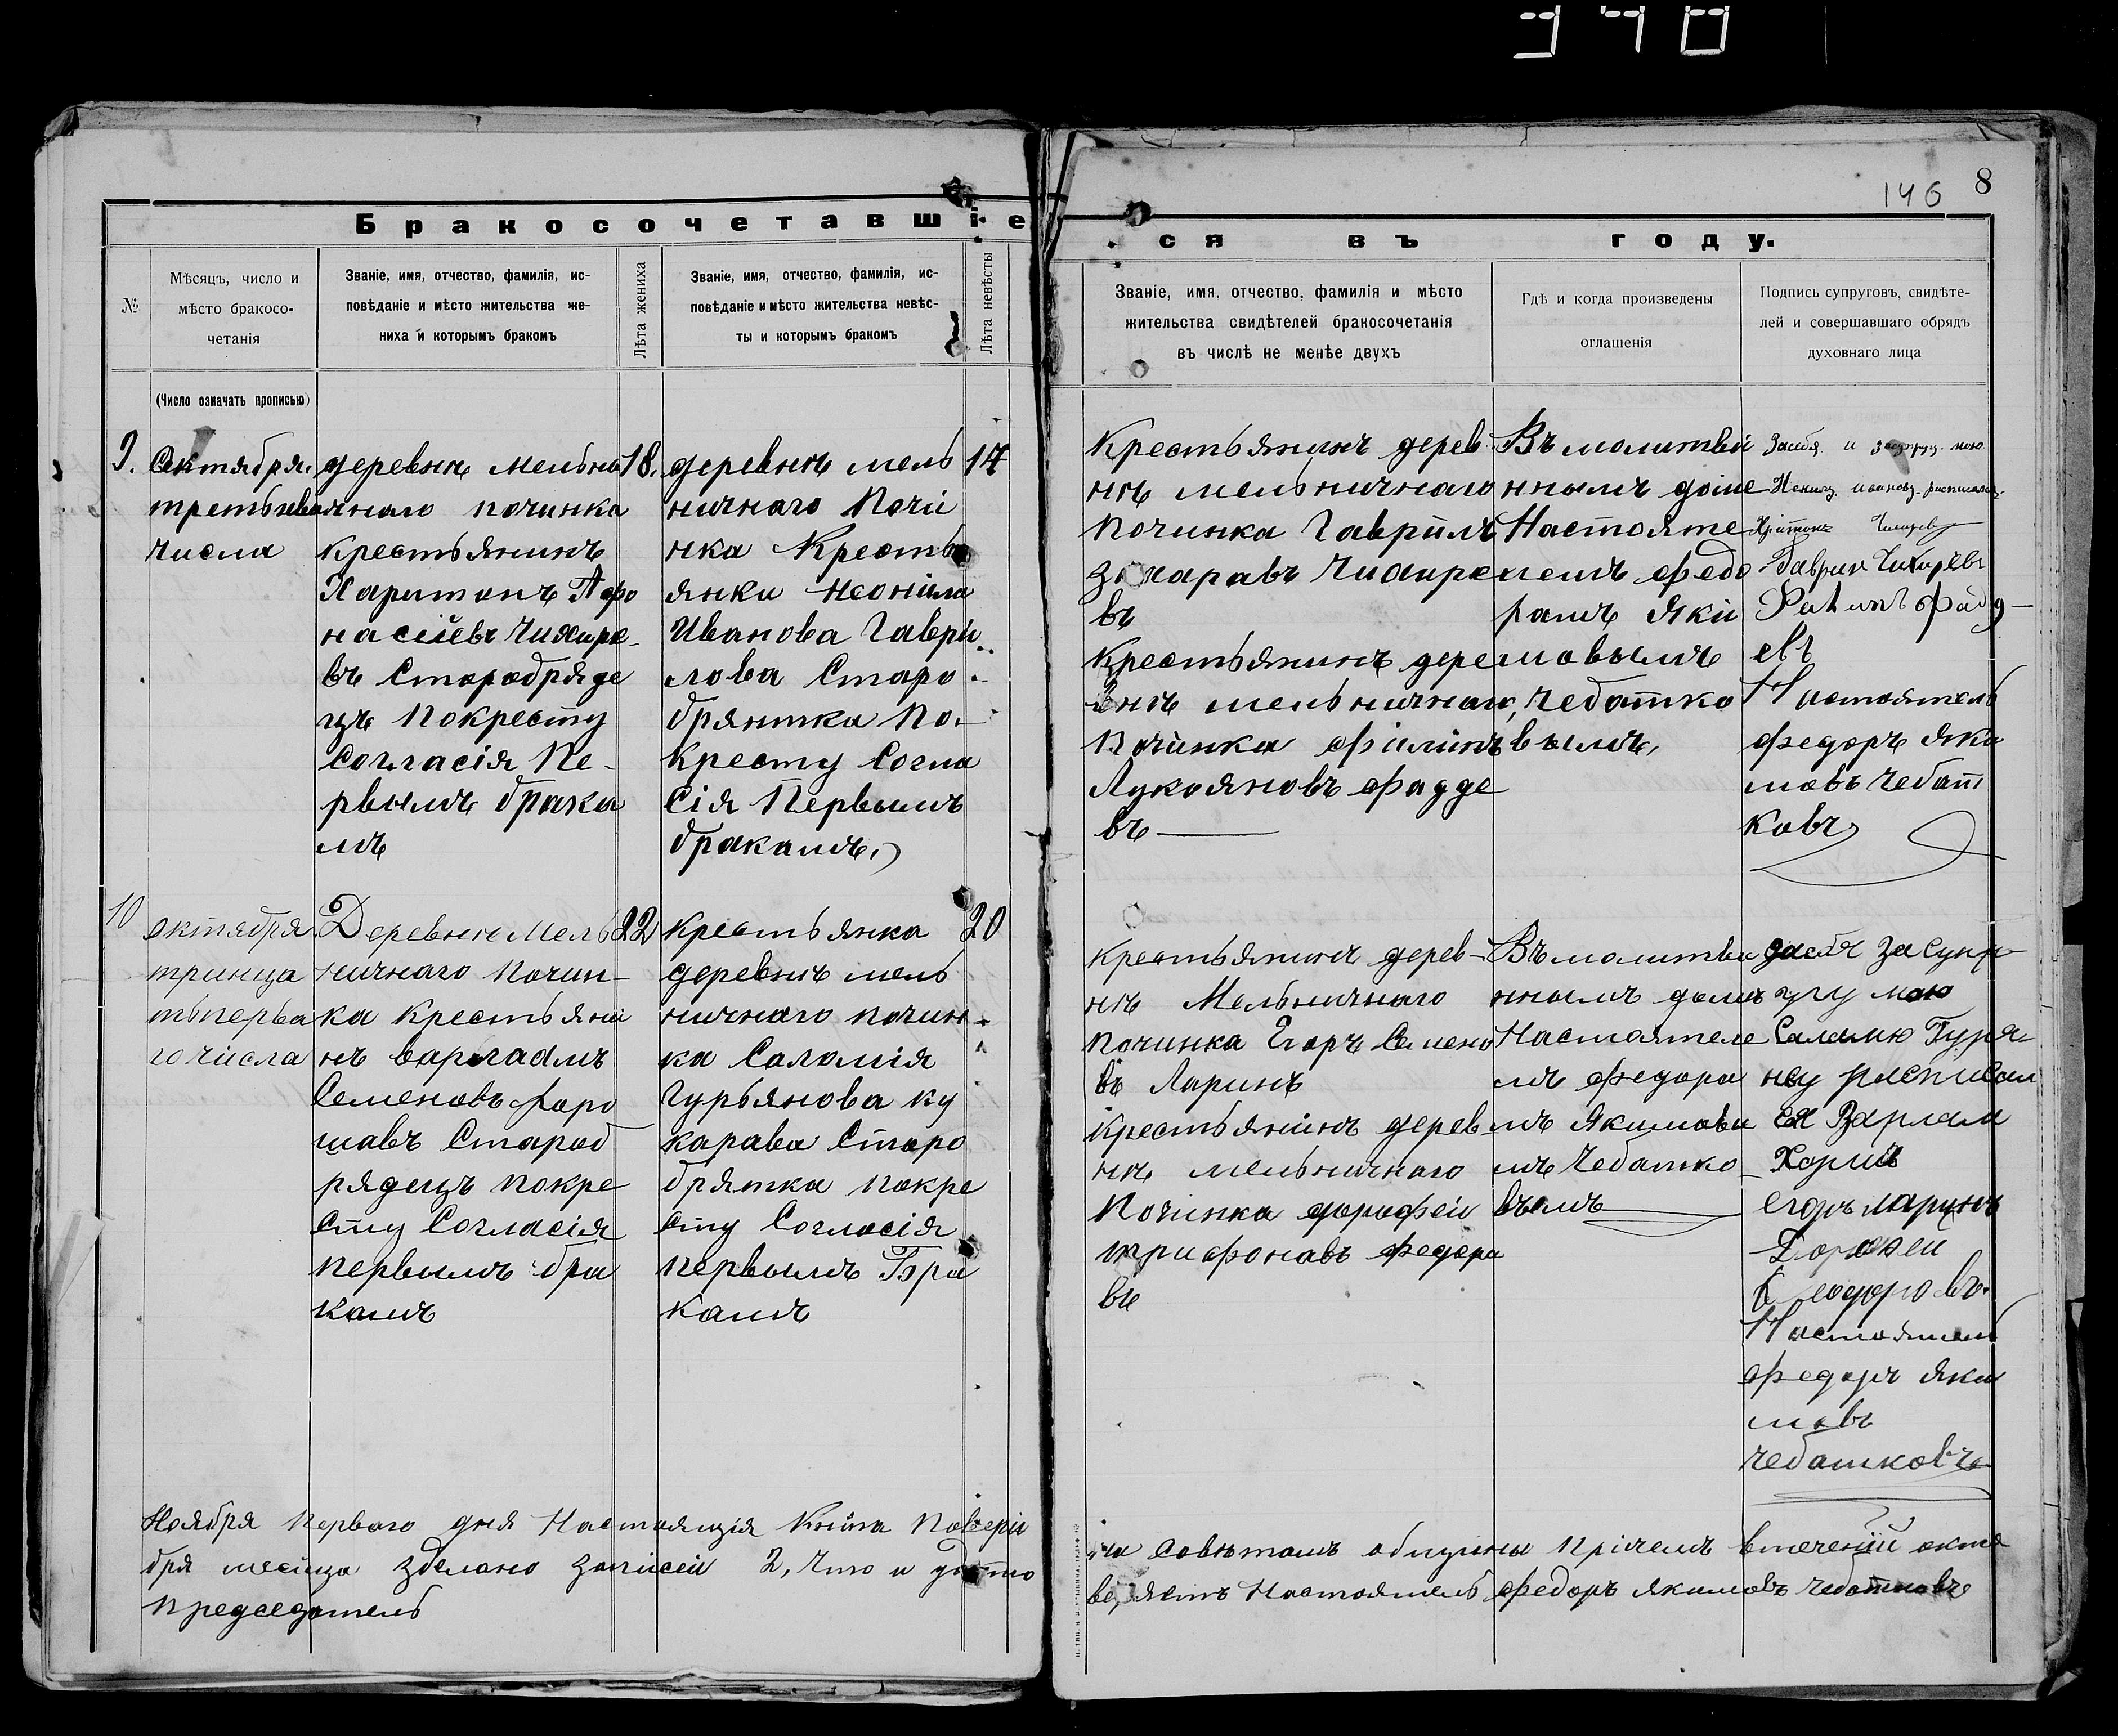 340
146 8
Бракосочетавшіе
ся въ году.
№
Мѣсяцъ, число и
мѣсто бракосо-
четанія
Званіе, имя, отчество, фамилія, ис-
повѣданіе и мѣсто жительства же-
ниха и которымъ бракомъ
Лѣта жениха
Званіе, имя, отчество, фамилія, ис-
повѣданіе и мѣсто жительства невѣс-
ты и которымъ бракомъ
Лѣта невѣсты
Званіе, имя, отчество, фамилія и мѣсто
жительства свидѣтелей бракосочетанія
въ числѣ не менѣе двухъ
Гдѣ и когда произведены
оглашенія
Подпись супруговъ, свидѣте-
лей и совершавшаго обрядъ
духовнаго лица
(Число означать прописью)
9.
Октября
третьяго
числа
деревнѣ мельни
чнаго починка
крестьянинъ
Харитонъ Афо
насіевъ Чихире
въ Старобряде
цъ покресту
Согласія Пе-
рвымъ брака
мъ
18.
деревнѣ мель
ничнаго Почи
нка Крестья
янки Неонила
Иванова Гаври
лова Старо
брянтка по-
кресту Согла
сія Первымъ
бракамъ,
17
Крестьянинъ дерев
нѣ мельничнаго
починка Гаврилъ
захаравъ Чихире
въ
Крестьянинъ дере
внѣ мельничнаго
починка филипъ
Лукояновъ Фадде
въ
Въ молитвен
нымъ доме
Настояте
лемъ федо
рамъ Яки
мовымъ
Чебатко
вымъ,
За себя и
Гаврил Чихирёвъ
Настоятель
федоръ Яки
мовъ Чебат
ковъ
10
октября
тринца
тьперва
го числа
Деревни Мель
ничнаго почин-
ка Крестьяни
нъ Варлаамъ
Семеновъ Харо
шавъ Староб
рядецъ покре
сту Согласія
первымъ бра
камъ
22
крестьянка
деревнѣ мель
ничнаго почин
ка Саломія
Гурьянова ку
карава Старо
брятка покре
сту Согласія
первымъ Бра
камъ
20
крестьянинъ дерев-
нѣ Мельничнаго
починка Егоръ Семено
въ Ларинъ
крестьянинъ дерев
нѣ мельничнаго
Починка дорофеи
трифонавъ Федора
въ
Въ молитве
ннымъ домѣ
Настоятеле
мъ федора
мъ Якимовы
мъ Чебатко
вымъ
засебя за Супр
угу мою
Саламю Гурья
нву росписал
ся Варлам
Хорш
егоръ ларинъ
Дорофеи
Феодоровъ.
Настоятель
федоръ Яки
мовъ
Чебатковъ
Ноября перваго дня Настоящія Книга Повери
на совѣтамъ общины причемъ втеченіи октя
бря месяца зделано записеи 2, что и удосто
веряетъ Настоятель федоръ якимовъ чебатковъ
Председатель